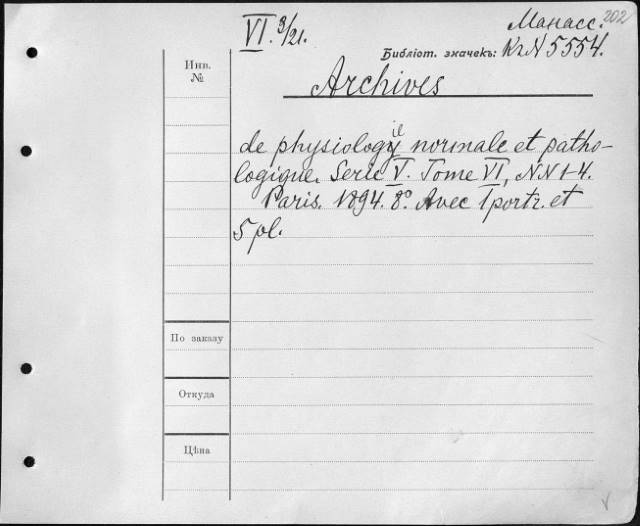 202
VI. 3/21.
Манасс.
Библіот. значекъ: КгN 5554.
Инв.
№
Archives
de physiologie normale et patho-
logique. Serie V. Tome VI, NN 1-4.
Paris. 1894. 8º. Avec 1 portr. et
5 pl.
По заказу
Откуда
Цѣна